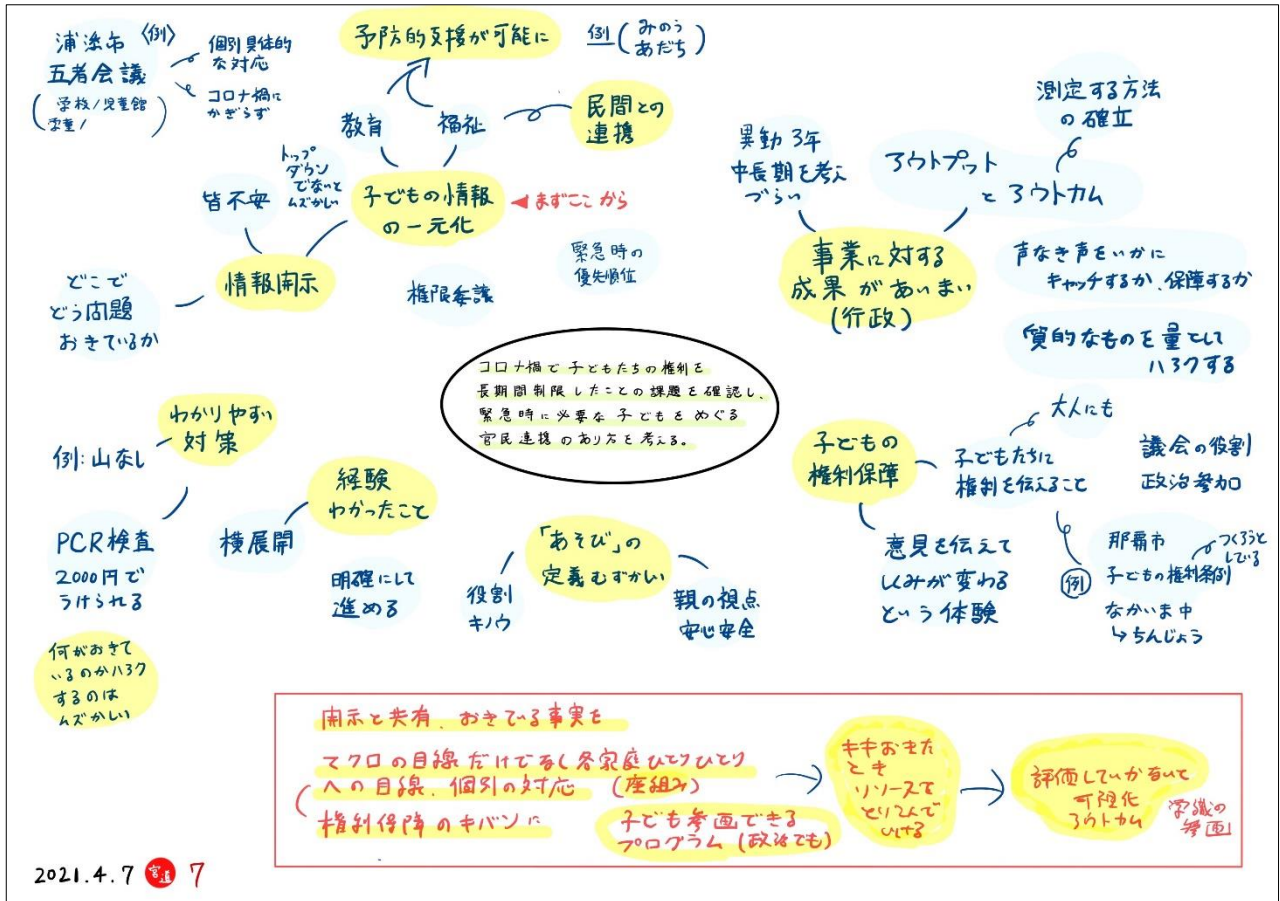 浦添市 〈例〉
五者会議
(学校/児童館
学童/)
個別具体的
な対応
コロナ禍に
かぎらず
予防的支援が可能に
例(みのう
あだち)
教育
福祉
民間との
連携
トップ
ダウン
でないと
ムズかしい
皆不安
子どもの情報
の一元化
◀まずここから
情報開示
どこで
どう問題
おきているか
権限委譲
緊急時の
優先順位
異動3年
中長期を考え
づらい
アウトプット
とアウトカム
測定する方法
の確立
事業に対する
成果があいまい
(行政)
声なき声をいかに
キャッチするか、保障するか
質的なものを量として
ハアクする
コロナ禍で子どもたちの権利を
長期間制限したことの課題を確認し、
緊急時に必要な子どもをめぐる
官民連携のあり方を考える。
わかりやすい
対策
例:山なし
PCR検査
2000円で
うけられる
経験
わかったこと
横展開
明確にして
進める
「あそび」の
定義むずかしい
役割
キノウ
親の視点
安心安全
子どもの
権利保障
子どもたちに
権利を伝えること
大人にも
議会の役割
政治参加
意見を伝えて
しくみが変わる
という体験
例
那覇市
子どもの権利条例
つくろうと
している
なかいま中
↳ちんじょう
何がおきて
いるのかハアク
するのは
ムズかしい
開示と共有、おきている事実を
マクロの目線だけでなく各家庭ひとりひとり
への目線、個別の対応 (座組み)
権利保障のキバンに
子ども参画できる
プログラム(政治でも)
キキおきた
とき
リソースで
とりくんで
いける
評価していかないで
可視化
アウトカム
学識の
参画
2021.4.7 7